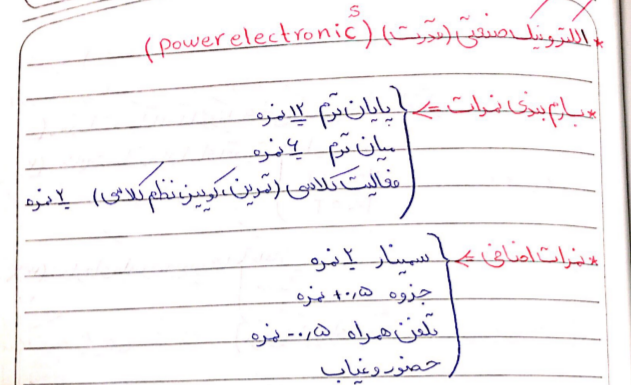 * الکترونیک صنعتی (قدرت) (power electronics)
* بارم بندی نمرات <= { پایان ترم ۱۲ نمره
میان ترم ۶ نمره
فعالیت کلاسی (تمرین، کوییز، نظم کلاسی) ۲ نمره
* نمرات اضافی <= { سمینار ۲ نمره
جزوه ۰٫۵+ نمره
تلفن همراه ۰٫۵- نمره
حضور و غیاب